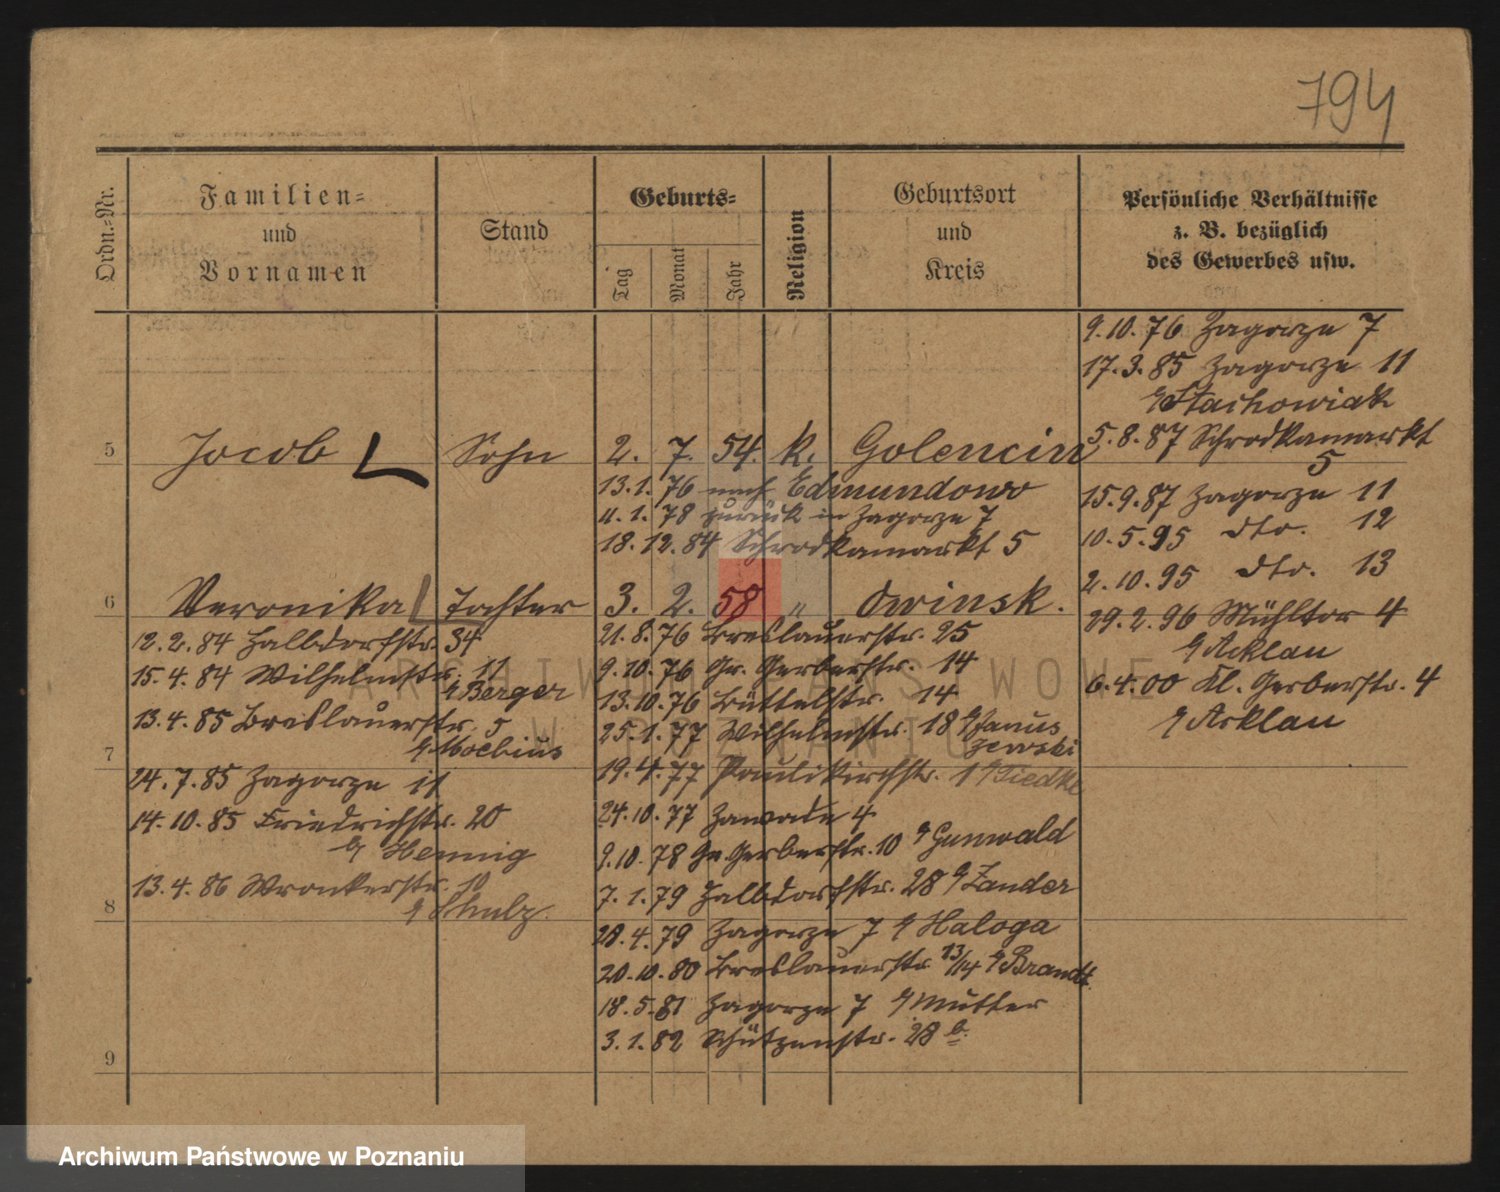 794
Ordn.-Nr.
Familien-
und
Vornamen
Stand
Geburts-
Tag
Monat
Jahr
Religion
Geburtsort
und
Kreis
Persönliche Verhältnisse
z. B. bezüglich
des Gewerbes usw.
9.10.76 Zagorze 7
17.3.85 Zagorze 11
b/ Stachowiak
5.8.87 Schrodkamarkt
5
15.9.87 Zagorze 11
10.5.95 dto. 12
2.10.95 dto. 13
29.2.96 Mühltor 4
b/ Acklau
6.4.00 Kl. Gerberstr. 4
b/ Acklau
5 Jacob Sohn 2. 7. 54. k. Golencin
13.1.76 nach Edmundowo
11.1.78 zurück in Zagorze 7
18.12.84 Schrodkamarkt 5
6 Veronika Tochter 3. 2. 58 „ Owinsk.
12.2.84 Halbdorfstr. 34
15.4.84 Wilhelmstr. 11
b/ Berger
13.4.85 Breslauerstr. 5
b/ Moebius
7
24.7.85 Zagorze 11
14.10.85 Friedrichstr. 20
b/ Hennig
13.4.86 Wronkerstr. 10
b/ Schulz.
8
9
21.8.76 Breslauerstr. 25
9.10.76 Gr. Gerberstr. 14
13.10.76 Büttelstr. 14
25.1.77 Wilhelmstr. 18 b/ Janus
zewski
19.4.77 Paulikirchstr. 1 b/ Tiedke
24.10.77 Zawade 4
9.10.78 Gr. Gerberstr. 10 b/ Gunwald
7.1.79 Halbdorfstr. 28 b/ Zander
28.4.79 Zagorze 7 b/ Haloga
20.10.80 Breslauerstr. 13/14 b/ Brandt.
18.5.81 Zagorze 7 b/ Mutter
3.1.82 Schützenstr. 28 b.
ARCHIWUM PAŃSTWOWE
W POZNANIU
Archiwum Państwowe w Poznaniu